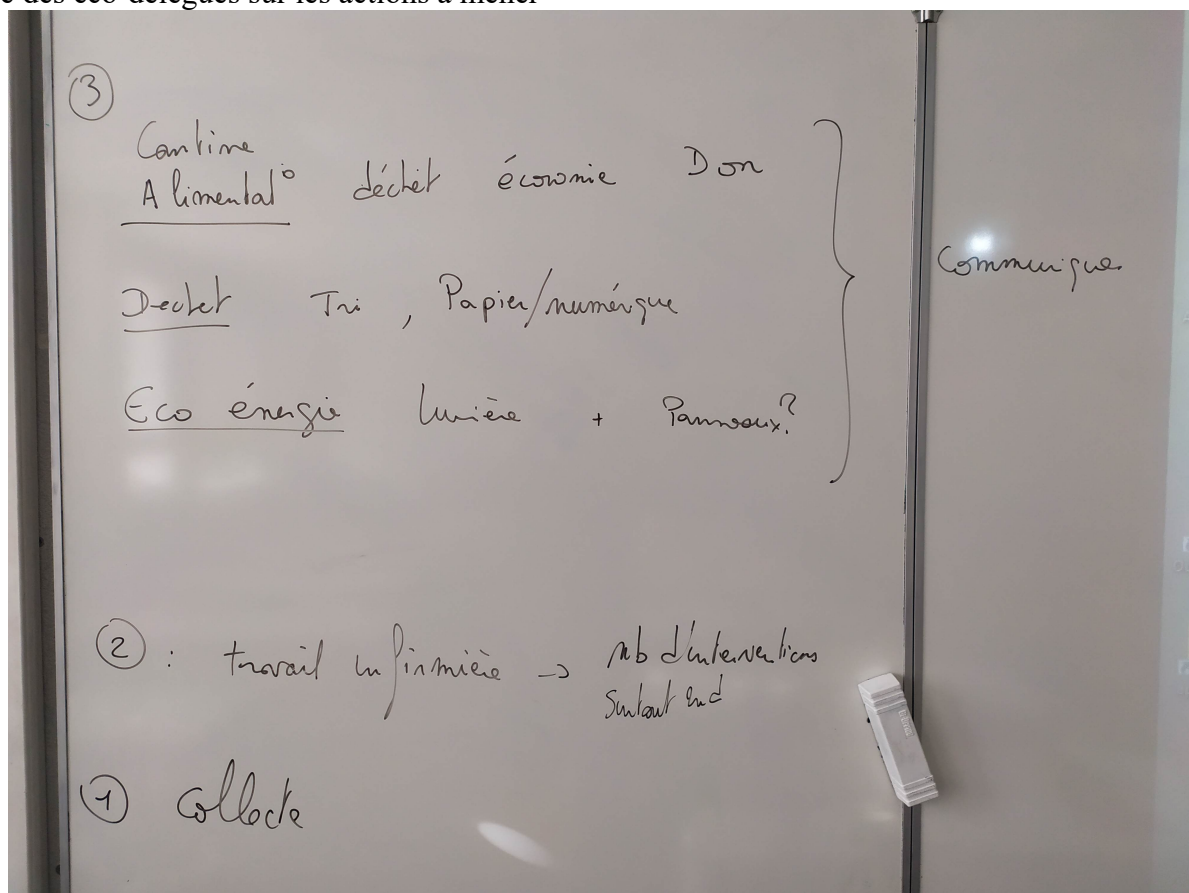 des éco-délégués sur les actions à mener
③
Cantine
Alimentat° déchêt économie Don
Dechet Tri , Papier/numérique
Eco énergie lumière + Panneaux?
Communiquer
② : travail infirmière → nb d'interventions
surtout end
① Collecte